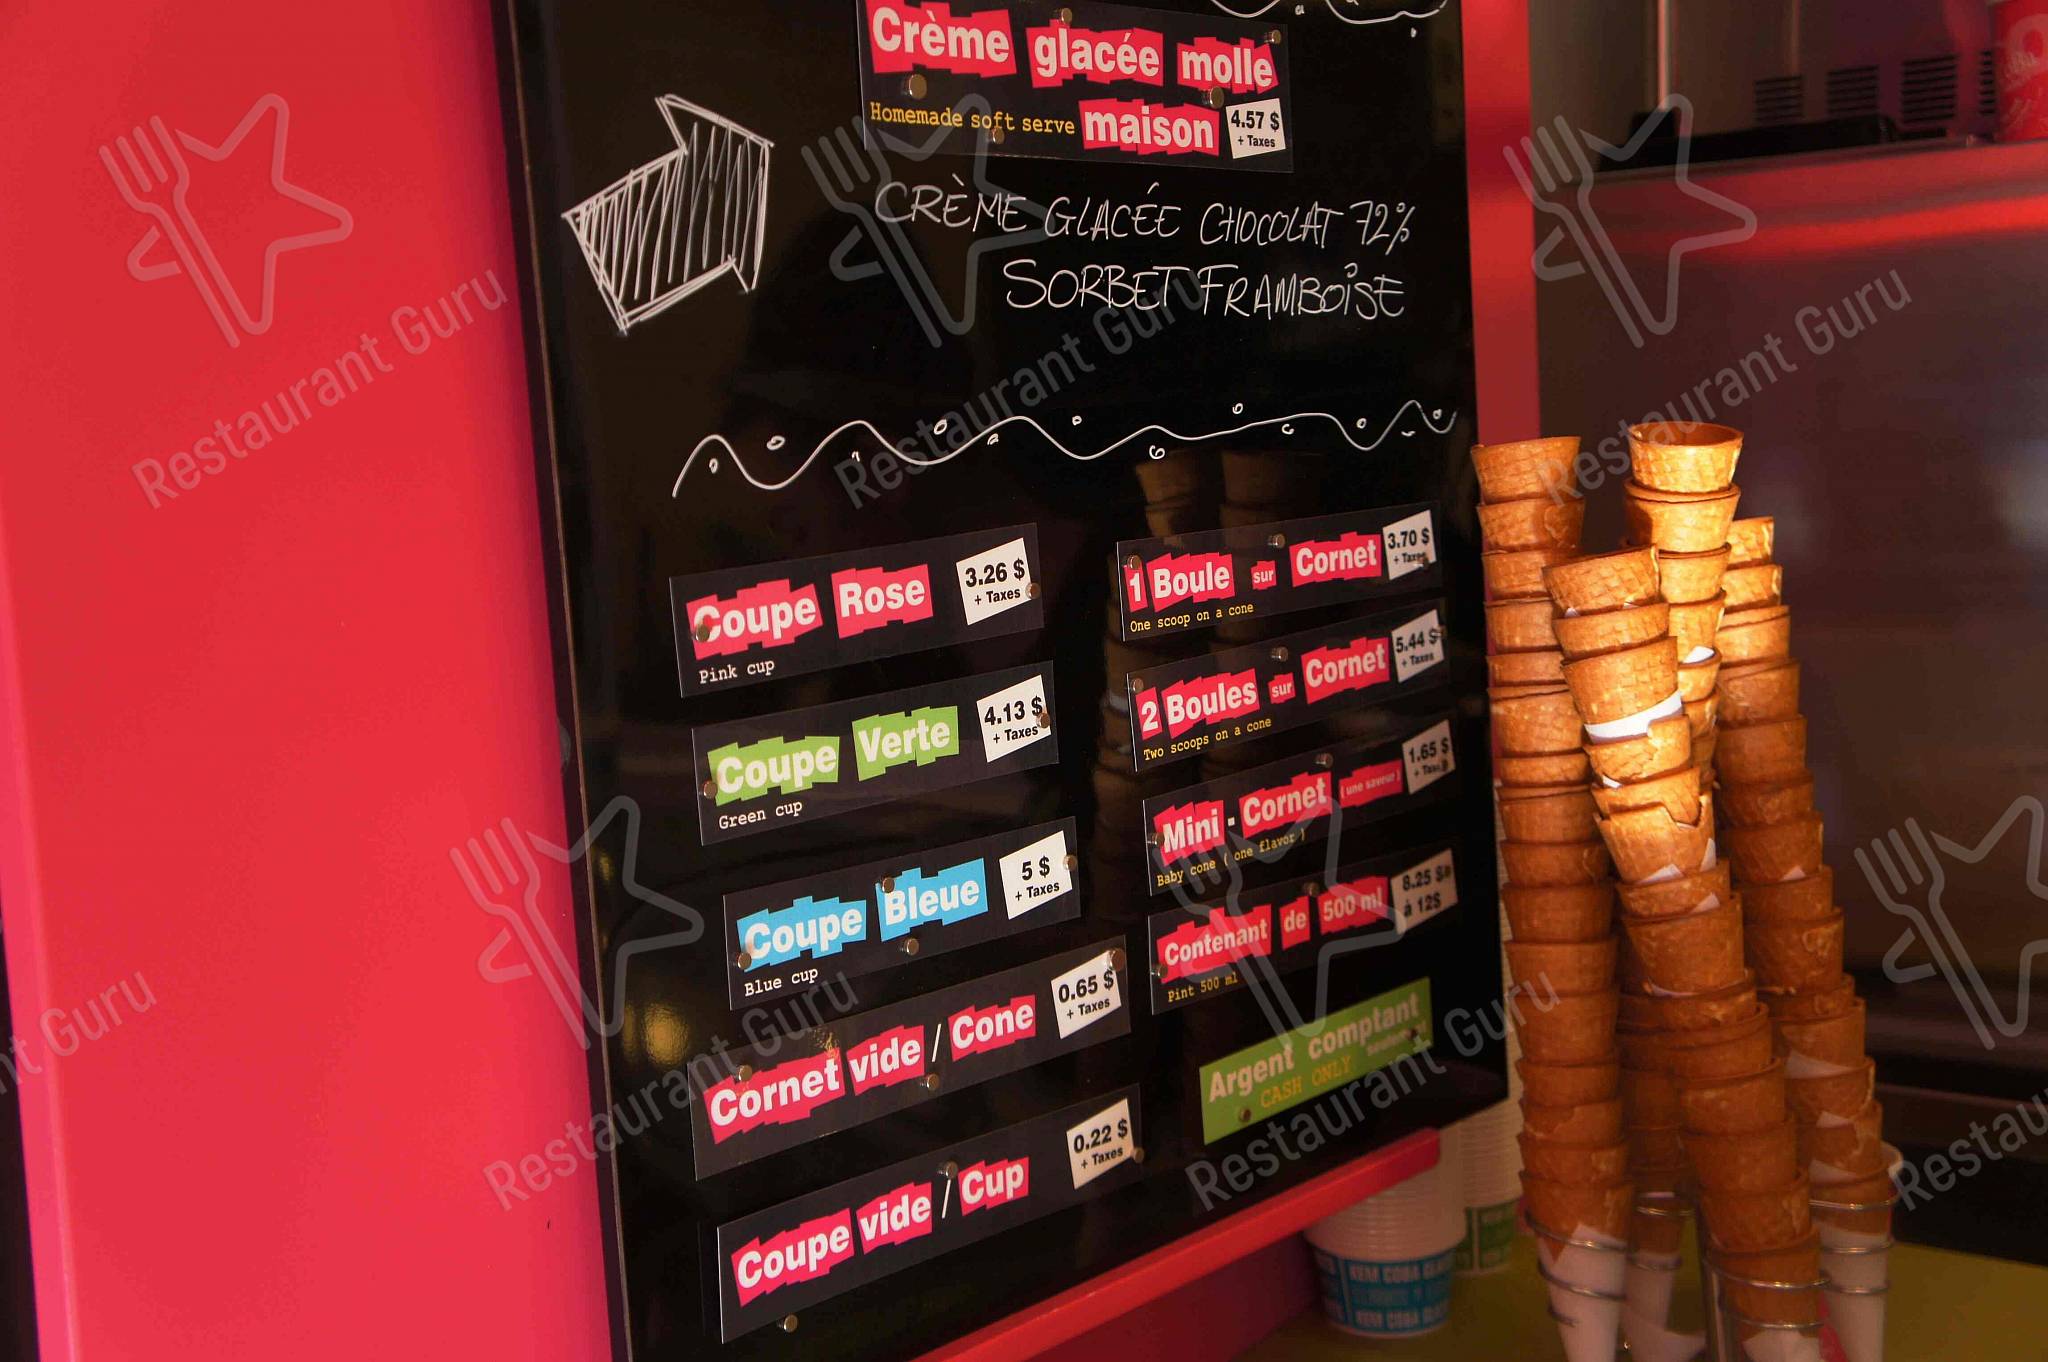 Crème glacée molle
Homemade soft serve maison 4.57 $
+ Taxes
CRÈME GLACÉE CHOCOLAT 72%
SORBET FRAMBOISE
Coupe Rose 3.26 $
+ Taxes
Pink cup
Coupe Verte 4.13 $
+ Taxes
Green cup
Coupe Bleue 5 $
+ Taxes
Blue cup
Cornet vide / Cone 0.65 $
+ Taxes
Coupe vide / Cup 0.22 $
+ Taxes
1 Boule sur Cornet 3.70 $
+ Taxes
One scoop on a cone
2 Boules sur Cornet 5.44 $
+ Taxes
Two scoops on a cone
Mini - Cornet ( une saveur ) 1.65 $
+ Taxes
Baby cone ( one flavor )
Contenant de 500 ml 8.25 $
à 12$
Pint 500 ml
Argent comptant
CASH ONLY
KEM COBA
KEM COBA
Restaurant Guru
Restaurant Guru
Restaurant Guru
Restaurant Guru
Restaurant Guru
Restaurant Guru
Restaurant